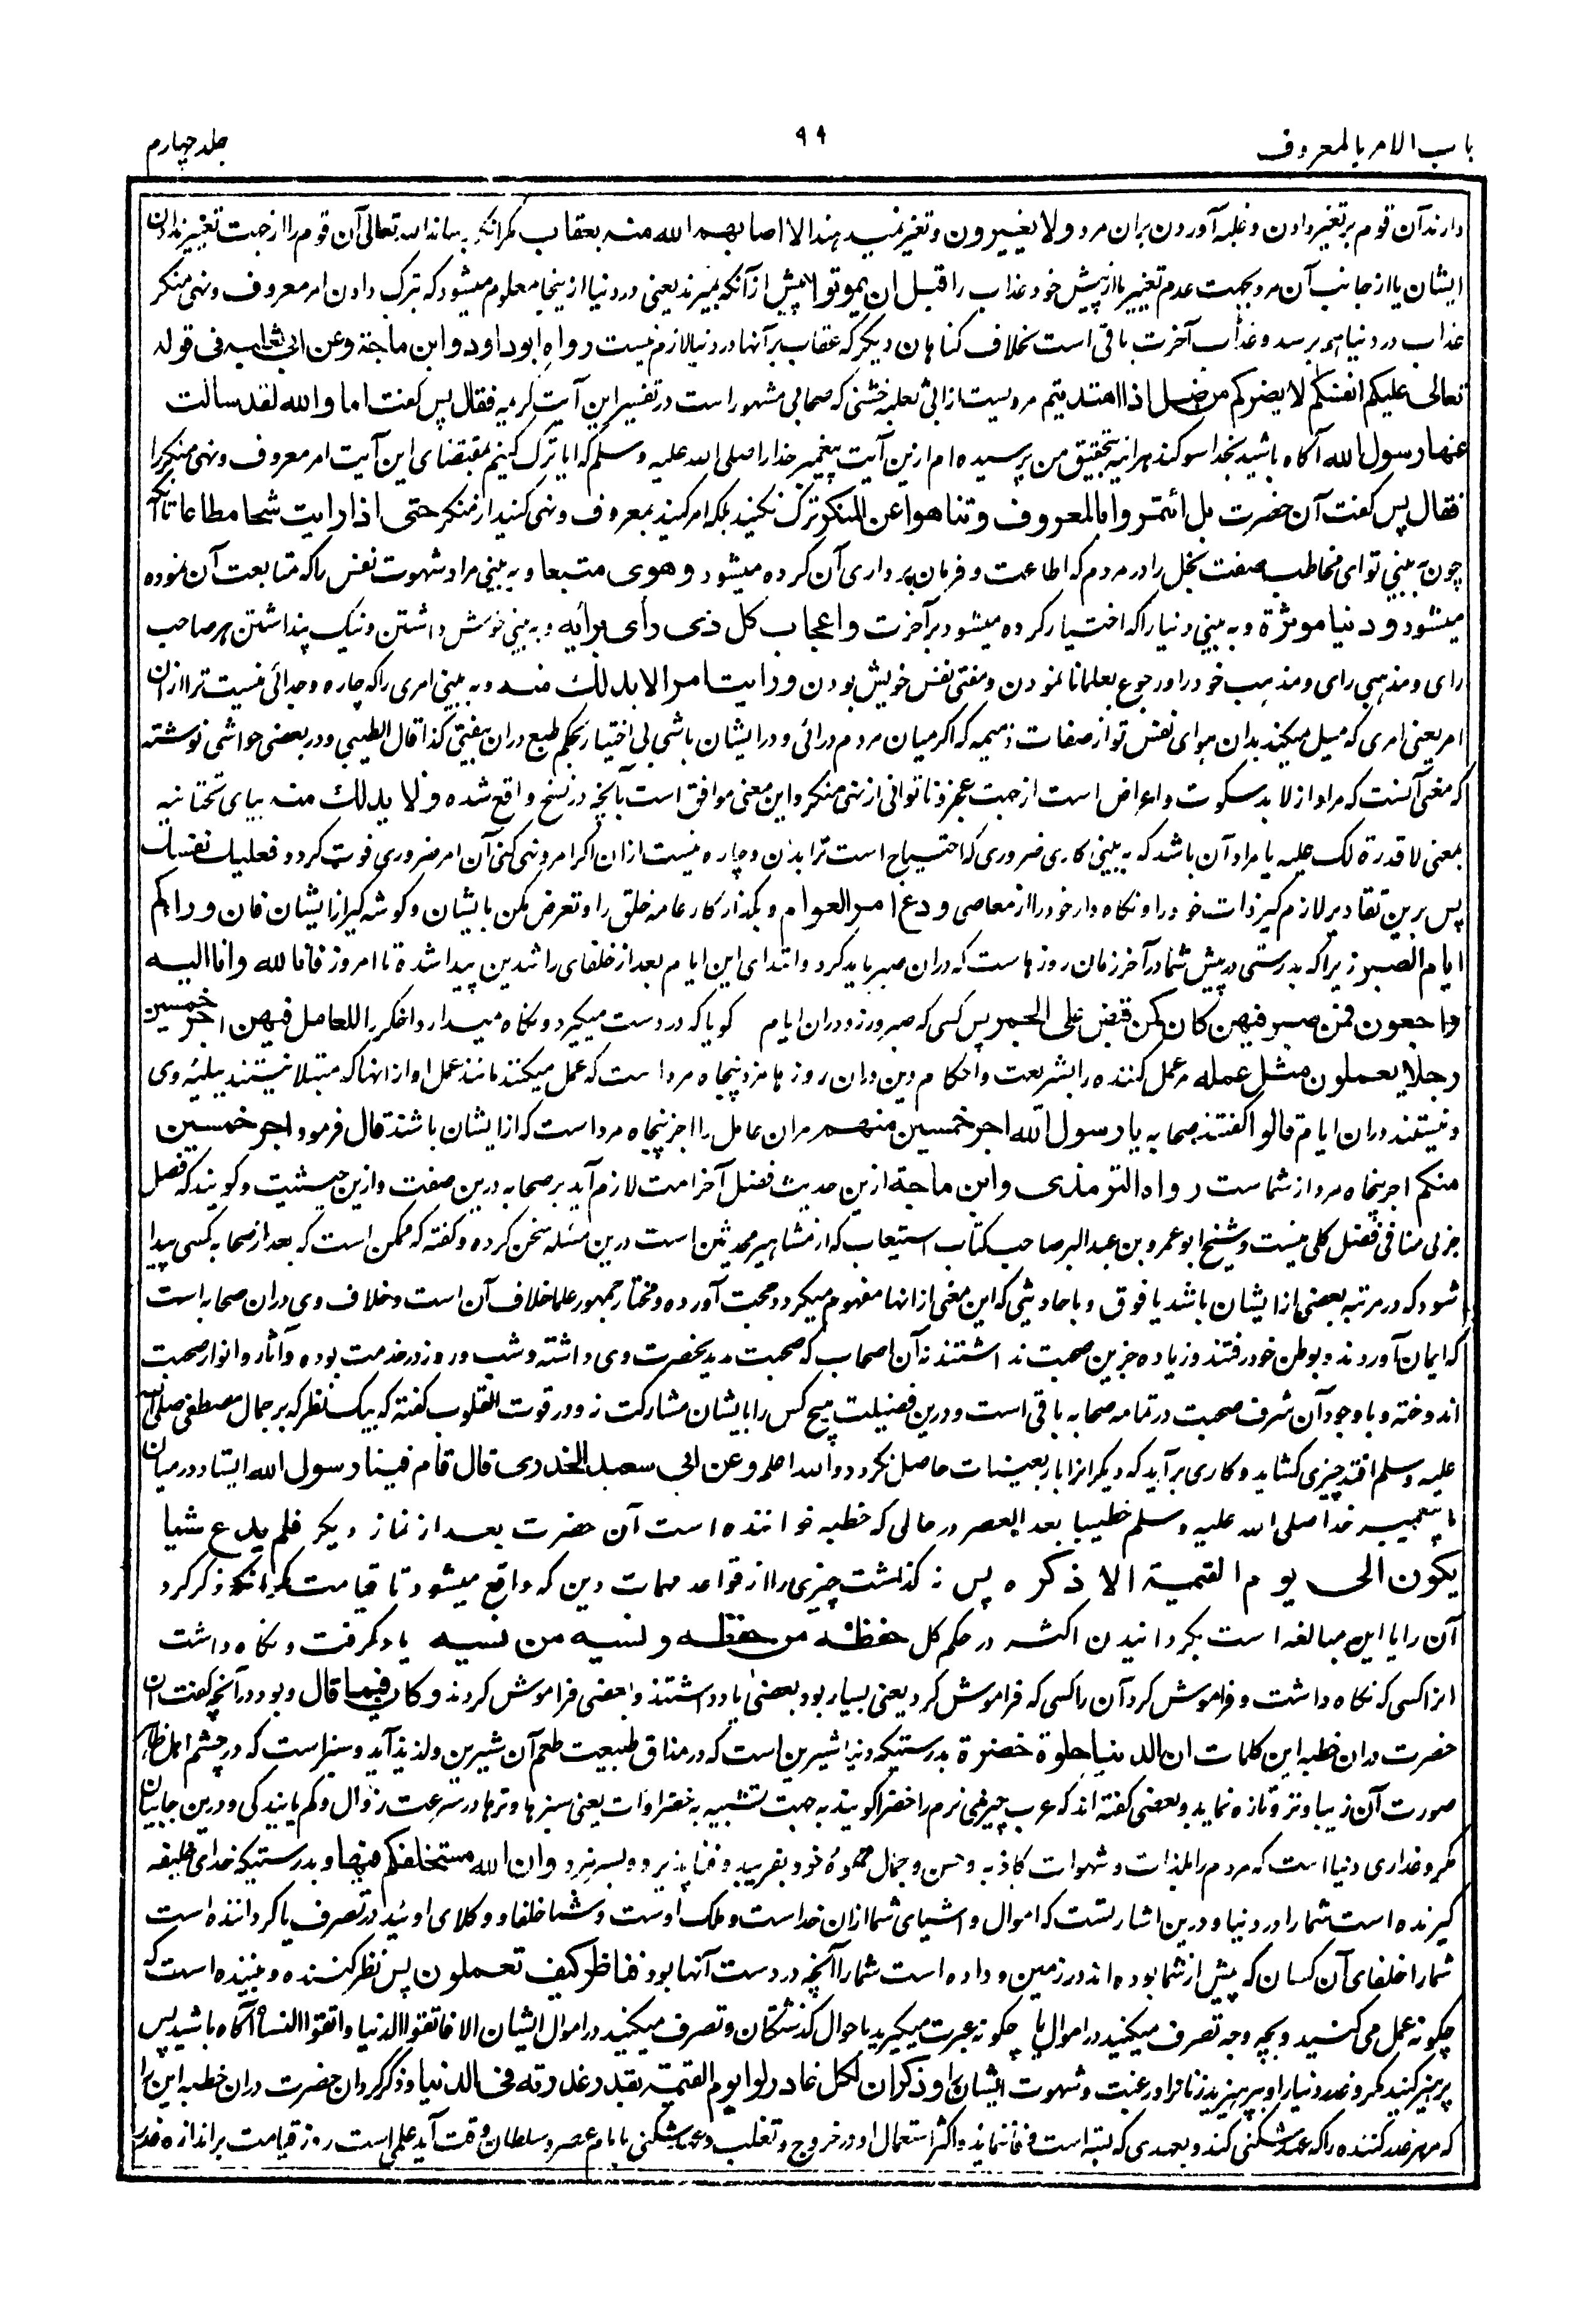 باب الامر بالمعروف
٩٩
جلد چهارم
دارند آن قوم بر تغییر دادن و غلبه آوردن بران مرد ولا یغیرون و تغییر نمیدهند الا اصابهم الله منه بعقاب مگر آنکه برساند الله تعالی آن قوم را از جهت تغییر ندادن
ایشان یا از جانب آن مرد بجهت عدم تغییر یا از پیش خود عذاب را قبل ان یموتوا پیش از آنکه بمیرند یعنی در دنیا ازینجا معلوم میشود که بترک دادن امر معروف و نهی منکر
عذاب در دنیا هم برسد و عذاب آخرت باقی است بخلاف گناهان دیگر که عقاب بر آنها در دنیا لازم نیست رواه ابوداود وابن ماجة وعن ابی ثعلبه فی قوله
تعالی علیکم انفسکم لا یضرکم من ضل اذا اهتدیتم مرویست از ابی ثعلبه خشنی که صحابی مشهور است در تفسیر این آیت کریمه فقال پس گفت اما والله لقد سالت
عنها رسول الله آگاه باشید بخدا سوگند هر آینه بتحقیق من پرسیده ام ازین آیت پیغمبر خدا را صلی الله علیه وسلم که ایا ترک کنیم بمقتضای این آیت امر معروف و نهی منکر را
فقال پس گفت آن حضرت بل ائتمروا بالمعروف وتناهوا عن المنکر ترک نکنید بلکه امر کنید بمعروف و نهی کنید از منکر حتی اذا رایت شحا مطاعا تا آنکه
چون به بینی تو ای مخاطب صفت بخل را در مردم که اطاعت و فرمان برداری آن کرده میشود وهوی متبعا و به بینی مراد شهوت نفس را که متابعت آن نموده
میشود ودنیا موثرة و به بینی دنیا را که اختیار کرده میشود بر آخرت واعجاب کل ذی رأی برأیه و به بینی خوش داشتن و نیک پنداشتن هر صاحب
رای و مذهبی رای و مذهب خود را و رجوع بعلما نا نمودن و مفتی نفس خویش بودن ورایت امرا لابد لك منه و به بینی امری را که چاره و جدائی نیست ترا از ان
امر یعنی امری که میل میکند بدان هوای نفس تو از صفات ذمیمه که اگر میان مردم درائی و در ایشان باشی بی اختیار بحکم طبع دران بیفتی کذا قال الطیبی و در بعضی حواشی نوشته
که معنی آنست که مراد از لابد سکوت و اعراض است از جهت عجز و ناتوانی از نهی منکر و این معنی موافق است بآنچه در نسخ واقع شده ولا ید لك منه بیای تحتانیه
بمعنی لا قدرة لک علیه یا مراد آن باشد که به بینی کاری ضروری که احتیاج است ترا بدان و چاره نیست از ان اگر امر و نهی کنی آن امر ضروری فوت گردد فعلیك نفسك
پس برین تقادیر لازم گیر ذات خود را و نگاه دار خود را از معاصی ودع امر العوام و بگذار کار عامه خلق را و تعرض مکن بایشان و گوشه گیر از ایشان فان وراءکم
ایام الصبر زیرا که بدرستی در پیش شما در آخر زمان روزهاست که دران صبر باید کرد و ابتدای این ایام بعد از خلفای راشدین پیدا شده تا امروز فانا لله وانا الیه
راجعون فمن صبر فیهن کان کمن قبض علی الجمر پس کسی که صبر ورزد دران ایام گویا که در دست میگیرد و نگاه میدارد اخگر را للعامل فیهن اجر خمسین
رجلا یعملون مثل عمله مر عمل کننده را بشریعت و احکام دین دران روزها مزد پنجاه مرد است که عمل میکنند مانند عمل او از انها که مبتلا نیستند ببلیه وی
و نیستند دران ایام قالوا گفتند صحابه یا رسول الله اجر خمسین منهم مران عامل را اجر پنجاه مرد است که از ایشان باشند قال فرمود اجر خمسین
منکم اجر پنجاه مرد از شماست رواه الترمذی وابن ماجة ازین حدیث فضل آخر امت لازم آید بر صحابه درین صفت و ازین حیثیت و گویند که فضل
جزئی منافی فضل کلی نیست و شیخ ابوعمرو بن عبدالبر صاحب کتاب استیعاب که از مشاهیر محدثین است درین مسئله سخن کرده و گفته که ممکن است که بعد از صحابه کسی پیدا
شود که در مرتبه بعضی از ایشان باشد یا فوق و باحادیثی که این معنی از انها مفهوم میگردد حجت آورده و مختار جمهور علما خلاف آن است و خلاف وی دران صحابه است
که ایمان آوردند و بوطن خود رفتند و زیاده جزین صحبت نداشتند نه آن اصحاب که صحبت مدید بحضرت وی داشته و شب و روز در خدمت بوده و آثار و انوار صحبت
اندوخته و با وجود آن شرف صحبت در تمامه صحابه باقی است و درین فضیلت هیچ کس را بایشان مشارکت نه و در قوت القلوب گفته که بیک نظر که بر جمال مصطفی صلی الله
علیه وسلم افتد چیزی کشاید و کاری برآید که دیگرانرا باربعینات حاصل نگردد والله اعلم وعن ابی سعید الخدری قال قام فینا رسول الله ایستاد در میان
ما پیغمبر خدا صلی الله علیه وسلم خطیبا بعد العصر در حالی که خطبه خواننده است آن حضرت بعد از نماز دیگر فلم یدع شیا
یکون الی یوم القیمة الا ذکره پس نه گذاشت چیزی را از قواعد مهمات دین که واقع میشود تا قیامت مگر آنکه ذکر کرد
آن را یا این مبالغه است بگردانیدن اکثر در حکم کل حفظه من حفظه ونسیه من نسیه یاد گرفت و نگاه داشت
انرا کسی که نگاه داشت و فراموش کرد آن را کسی که فراموش کرد یعنی بسیار بود بعضی یاد داشتند و بعضی فراموش کردند وکان فیما قال و بود در آنچه گفت ان
حضرت دران خطبه این کلمات ان الدنیا حلوة خضرة بدرستیکه دنیا شیرین است که در مذاق طبیعت طعم آن شیرین و لذیذ آید و سبز است که در چشم اهل ظاهر
صورت آن زیبا و تر و تازه نماید و بعضی گفته اند که عرب چیزهی نرم را خضرا گویند به جهت تشبیه به خضراوات یعنی سبزها و ترها در سرعت زوال و کم پایندگی و درین جا بیان
مکر و غداری دنیا است که مردم را بلذات و شهوات کاذبه و حسن و جمال خود بفریبد و فنا پذیرد و بسر برد وان الله مستخلفکم فیها و بدرستیکه خدای خلیفه
گیرنده است شما را در دنیا و درین اشارتست که اموال و اشیای شما از ان خداست و ملک اوست و شما خلفا و وکلای اوئید در تصرف یا گرداننده است
شما را خلفای آن کسان که پیش از شما بوده اند در زمین و داده است شما را آنچه در دست آنها بود فناظر کیف تعملون پس نظر کننده و بیننده است که
چگونه عمل می کنید و بچه وجه تصرف میکنید در اموال یا چگونه عبرت میگیرید باحوال گذشتگان و تصرف میکنید در اموال ایشان الا فاتقوا الدنیا واتقوا النساء آگاه باشید پس
پرهیز کنید مکر و غدر دنیا را و بپرهیزید زنان را و رغبت و شهوت ایشان را وذکر ان لکل غادر لواء یوم القیمة بقدر غدرته فی الدنیا و ذکر کرد ان حضرت دران خطبه این را
که مر هر غدر کننده را که عهد شکنی کند و بعهدی که بسته است وفا ننماید و اکثر استعمال او در خروج و تغلب و عهد شکنی با امام عصر و سلطان وقت آید علمی است روز قیامت بر اندازه غدر